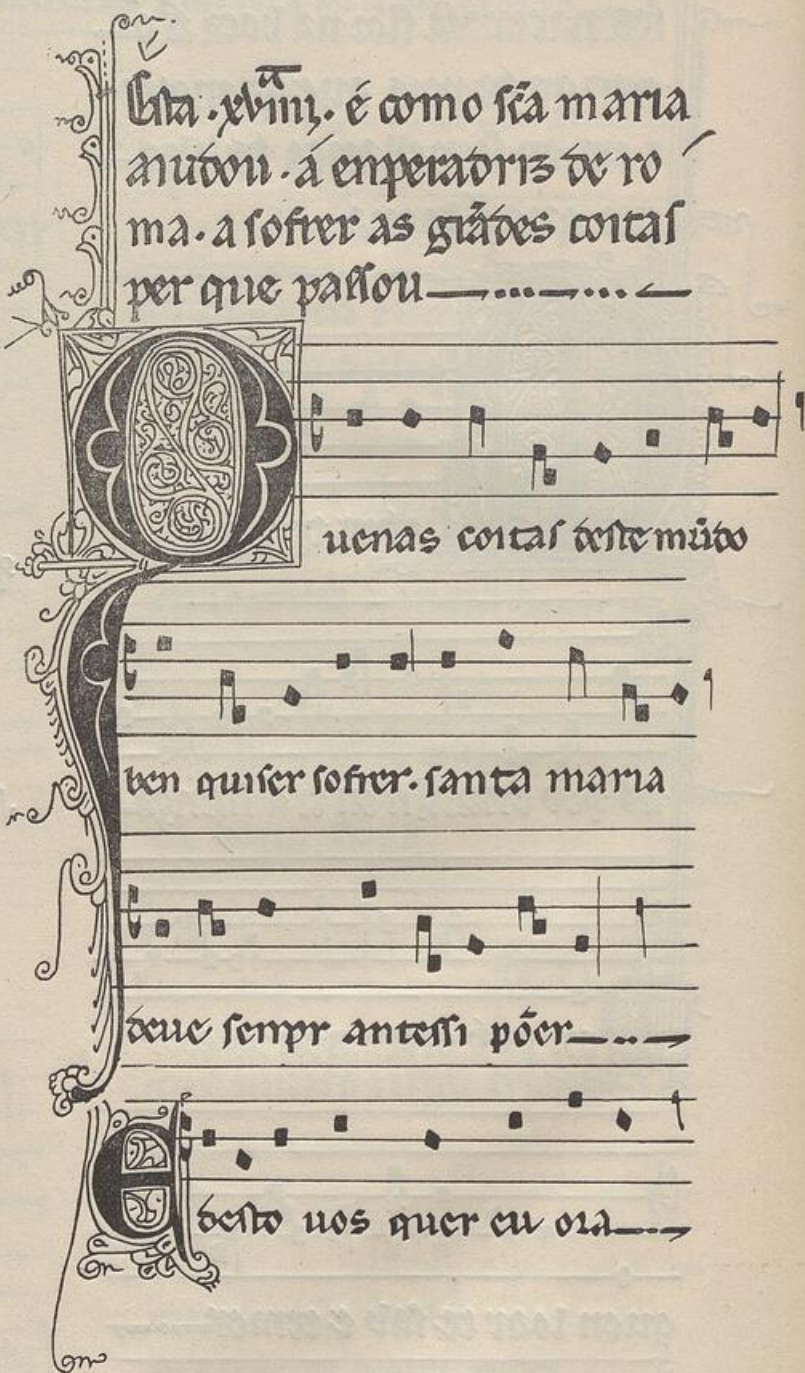 Esta .xviiijª. é como sc̃a maria
aiudou . á enperadriz de ro
ma . a sofrer as grãdes coitas
per que passou
Quenas coitas deste mũdo
ben quiser sofrer . santa maria
deue senpr antessi põer
E desto uos quer eu ora